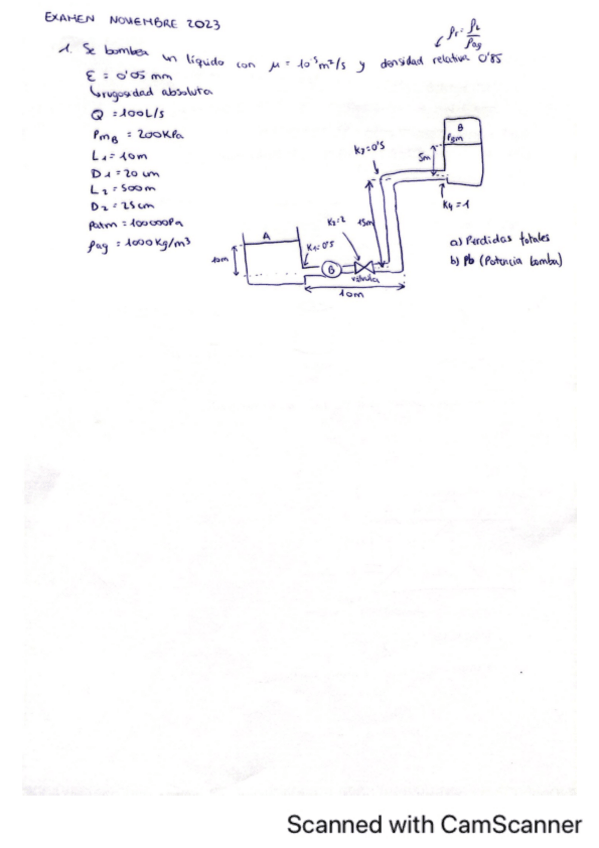 EXAMEN NOVIEMBRE 2023
ρr = ρL / ρag
1. Se bombea un líquido con μ = 10⁻⁵ m²/s y densidad relativa 0'85
ε = 0'05 mm
rugosidad absoluta
Q = 100 L/s
PmB = 200 KPa
L1 = 10m
D1 = 20 cm
L2 = 500m
D2 = 25cm
Patm = 100000Pa
ρag = 1000 Kg/m³
A
10m
K1=0'5
B
K2=2
válvula
10m
15m
K3=0'5
5m
B
PBm
K4=1
a) Pérdidas totales
b) Pb (Potencia bomba)
Scanned with CamScanner